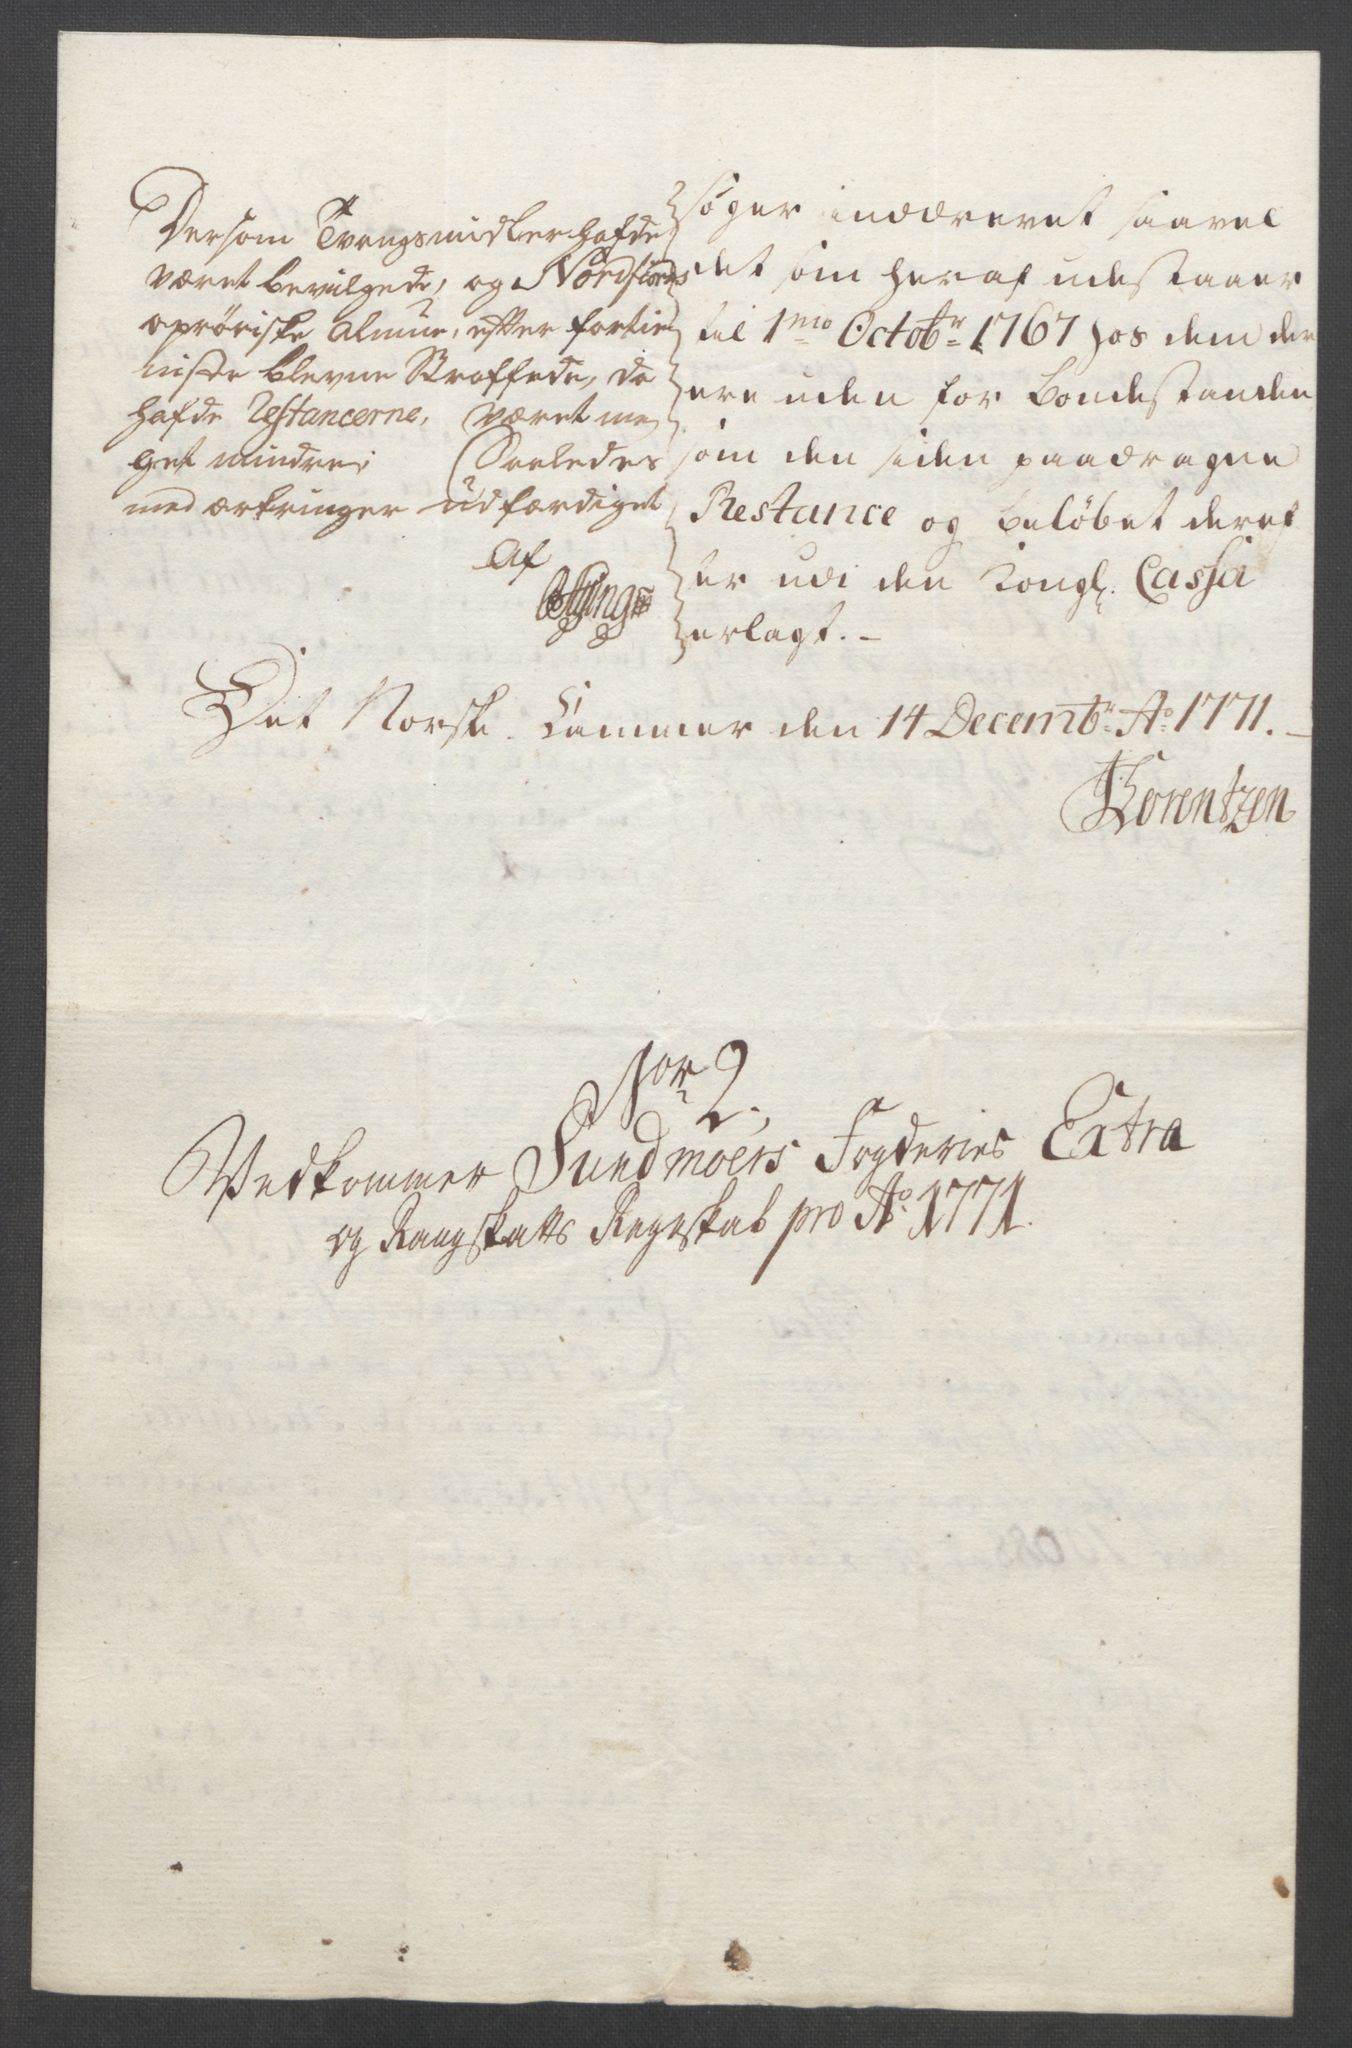 Dersom Tvangsmidler hafde
været bevilgede, og Nordfiords
oprøriske Almue, efter fortie
niste blevne Straffede, da
hafde Restancerne, været me
get mindre; Saaledes
med ærkringer udfærdiget
Af
søger inddrevet saavel
det som heraf udestaaer
til 1mo Octobr 1767 hos dem der
ere uden for Bondestanden
som den siden paadragne
Restance og beløbet deref
ter udi den Kongl. Cassa
erlagt. –
Det Norske Cammer den 14 Decembr Ao 1771. –
Lorentzen
Nor 2.
Vedkommer Sundmoers Fogderies Extra
og Rangskatts Regnskab pro Ao 1771.